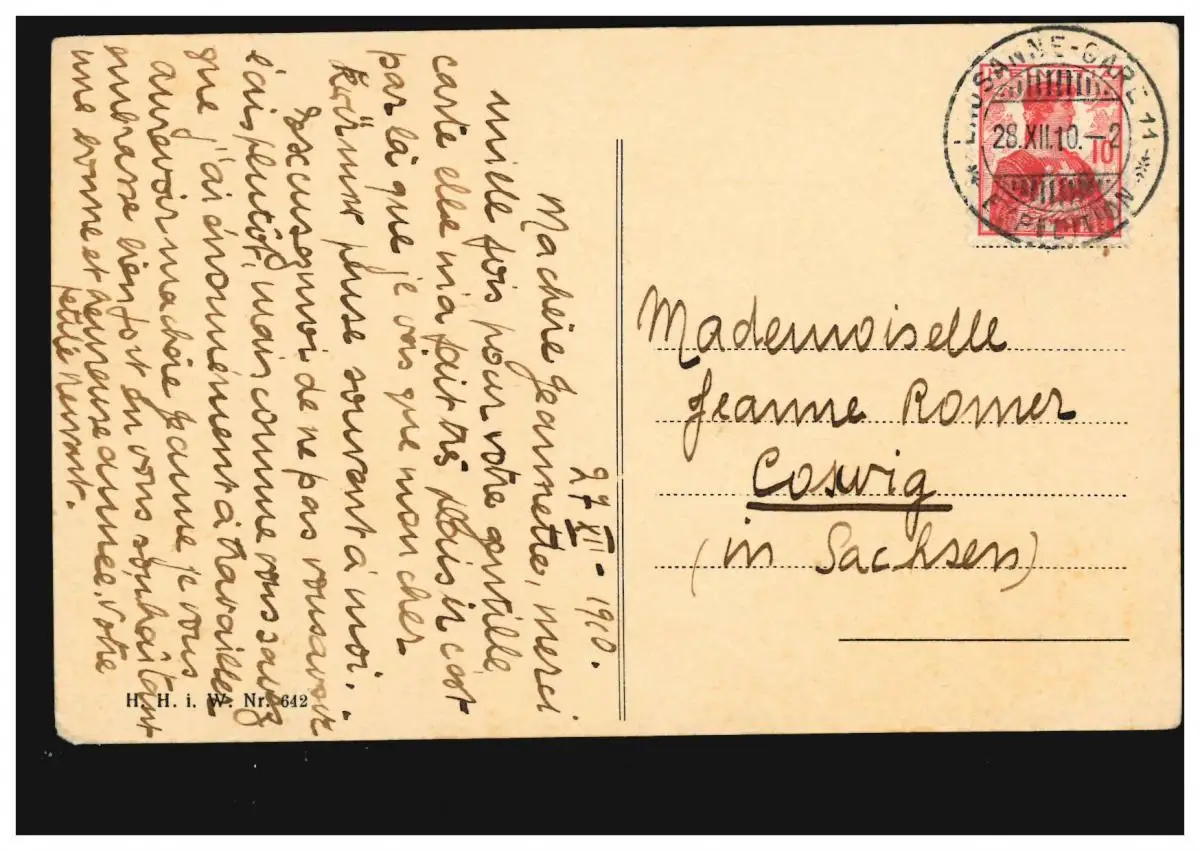 27 XII - 1910.
Ma chère Jeannette, merci
mille fois pour votre gentille
carte elle m'a fait très plaisir c'est
par là que je vois que mon cher
pense souvant à moi.
Excusez moi de ne pas vous avoir
écris plutôt, mais comme vous savez
que j'ai énormément à travailler
aurevoir ma chère Jeanne je vous
embrasse bien fort en vous souhaîtant
une bonne et heureuse année. Votre
petite
H. H. i. W. Nr. 642
LAUSANNE-GARE 11
28.XII.10.-2
EXPEDITION
10
Mademoiselle
Jeanne Romer
Coswig
(in Sachsen)